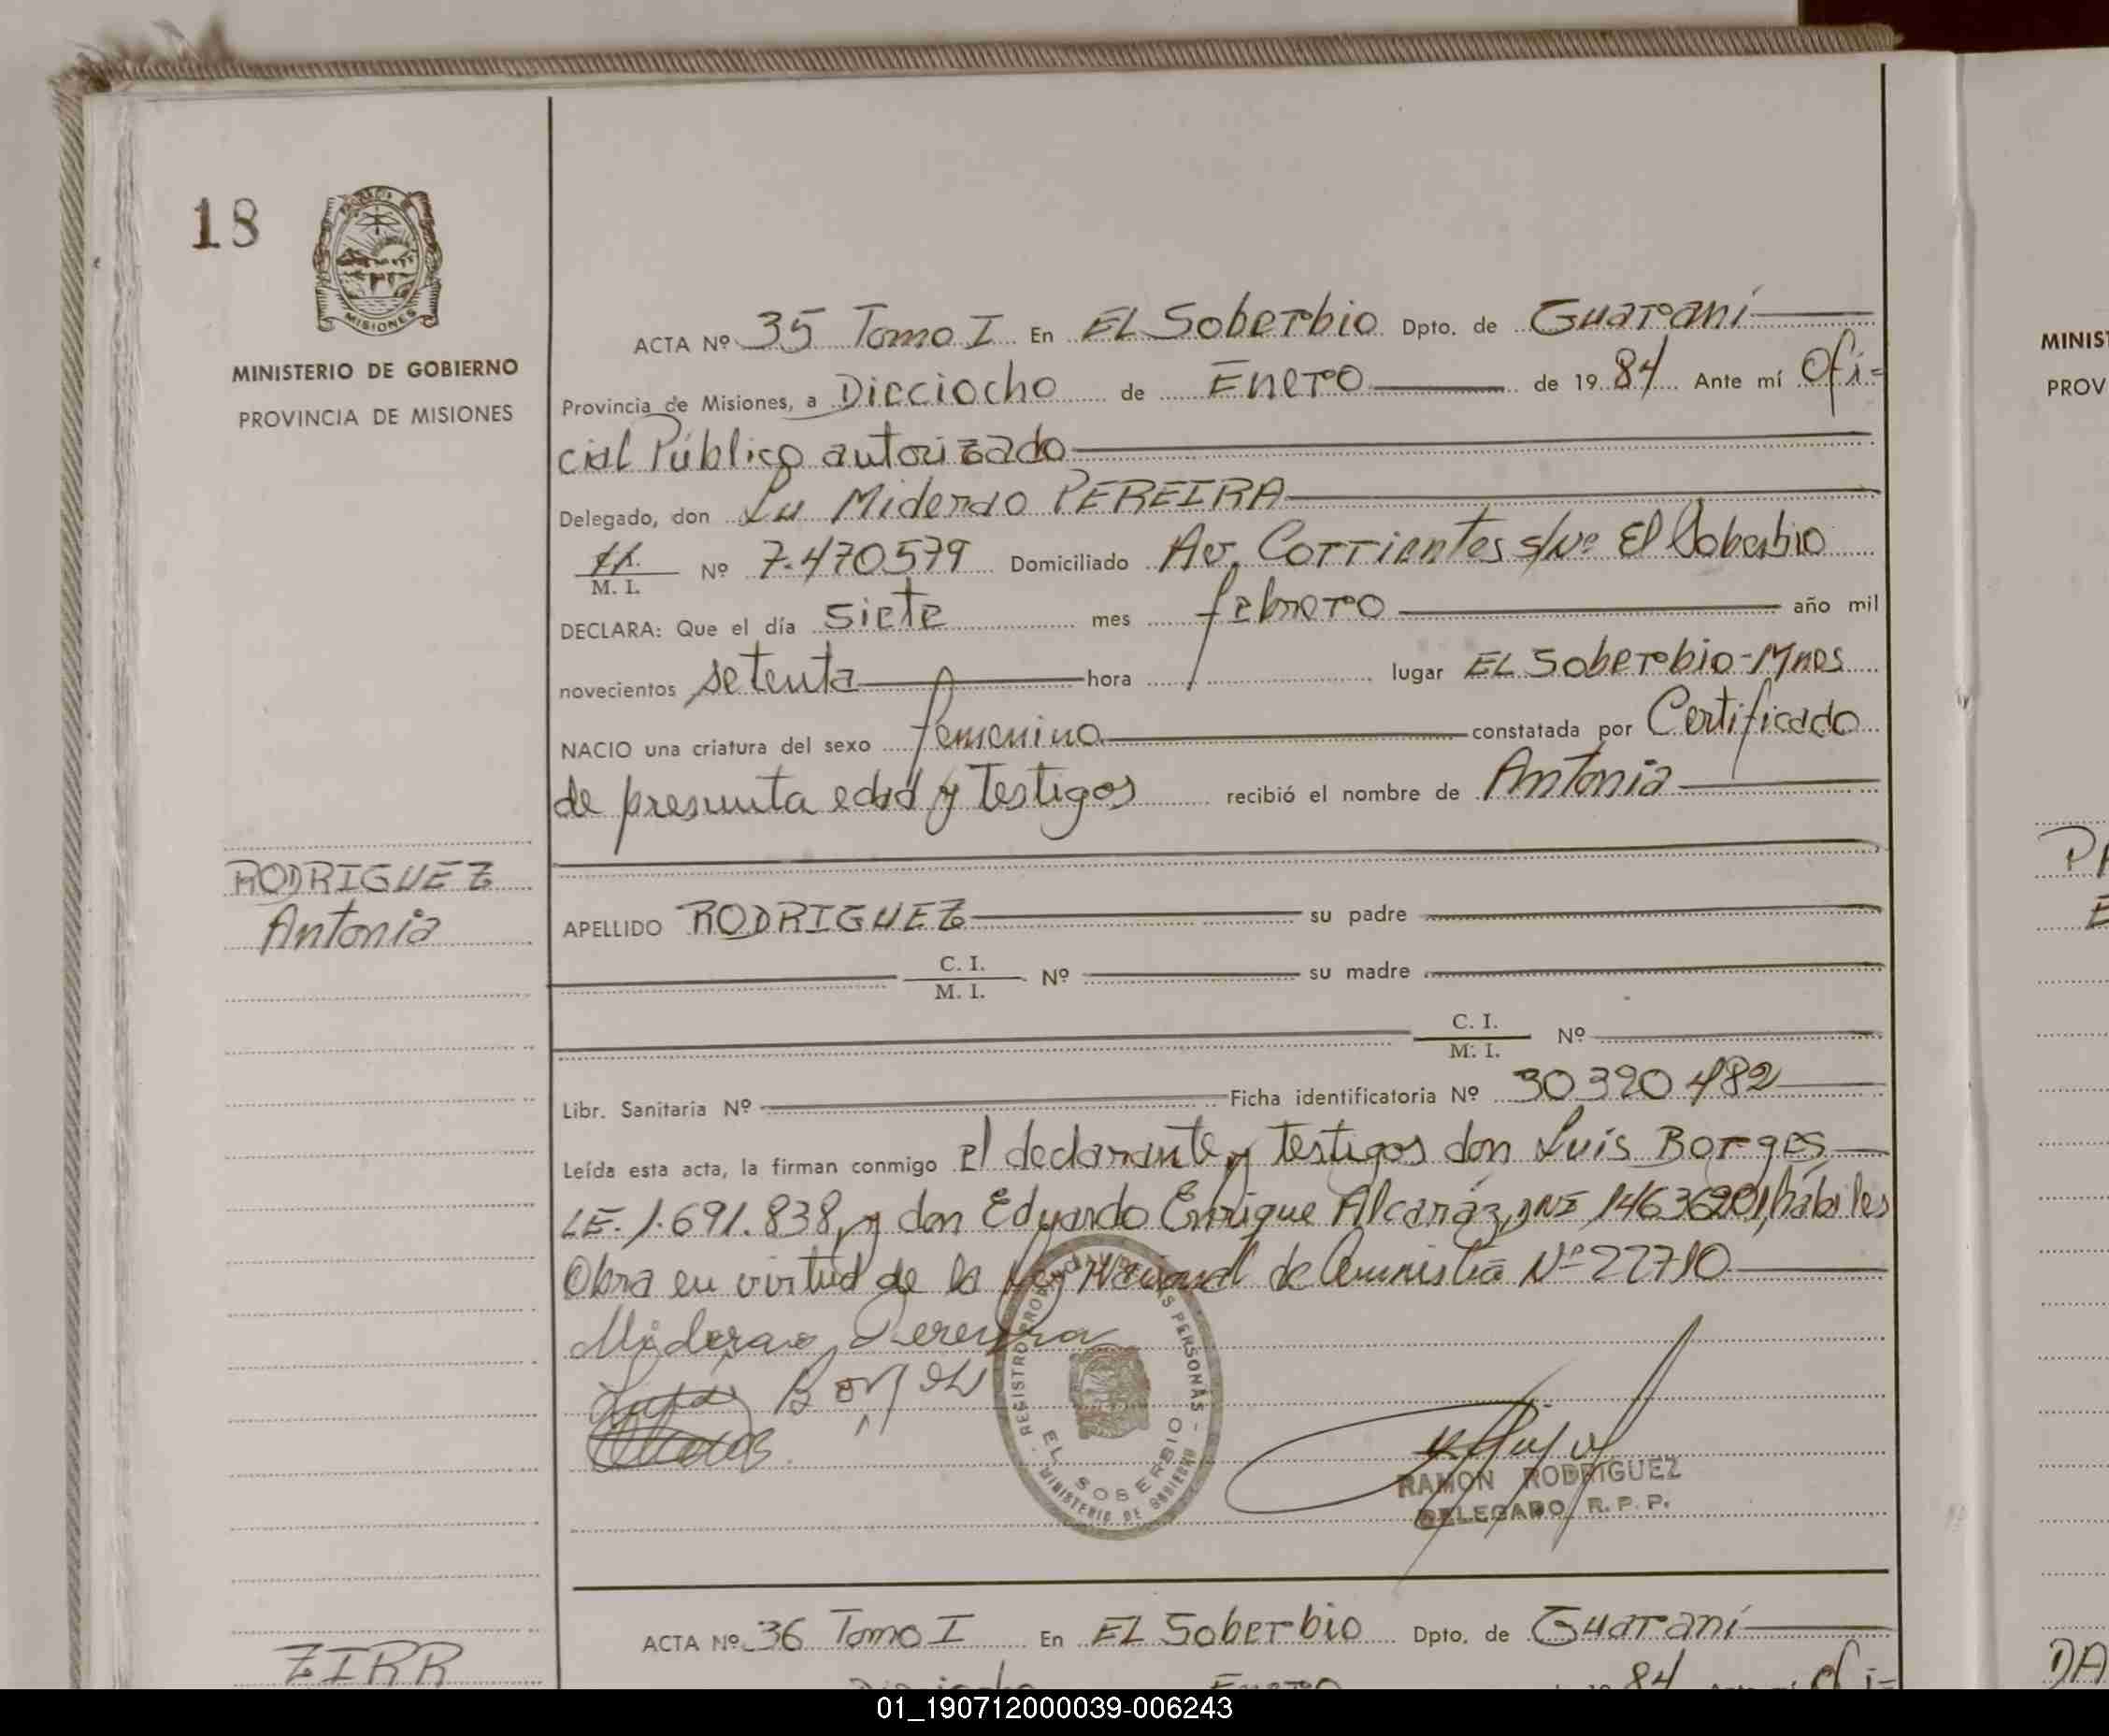 18
MISIONES
MINISTERIO DE GOBIERNO
PROVINCIA DE MISIONES
RODRIGUEZ
Antonia
ACTA Nº 35 Tomo I En EL Soberbio Dpto. de Guaraní
Provincia de Misiones, a Dieciocho de Enero de 1984 Ante mí Ofi-
cial Público autorizado
Delegado, don Lu Miderao PEREIRA
M. I. Nº 7.470579 Domiciliado Av. Corrientes s/Nº El Soberbio
DECLARA: Que el día siete mes febrero año mil
novecientos setenta hora lugar EL Soberbio-Mnes
NACIO una criatura del sexo femenino constatada por Certificado
de presunta edad y Testigos recibió el nombre de Antonia
APELLIDO RODRIGUEZ su padre
C. I.
M. I. Nº su madre
C. I.
M. I. Nº
Libr. Sanitaria Nº Ficha identificatoria Nº 30320482
Leída esta acta, la firman conmigo el declarante y Testigos don Luis Borges
LE. 1.691.838, y don Eduardo Enrique Alcaráz, DNI 14636201, hábiles
Obra en virtud de la Ley Nacional de Amnistía Nº 22710
Miderao Pereira
Borges
REGISTRO PROVINCIAL DE LAS PERSONAS
EL SOBERBIO
MINISTERIO DE GOBIERNO
RAMON RODRIGUEZ
DELEGADO R. P. P.
ZIRR
ACTA Nº 36 Tomo I En EL Soberbio Dpto. de Guaraní
Dieciocho Enero 84 Ofi-
MINIST
PROV
PA
E
DA
01_190712000039-006243